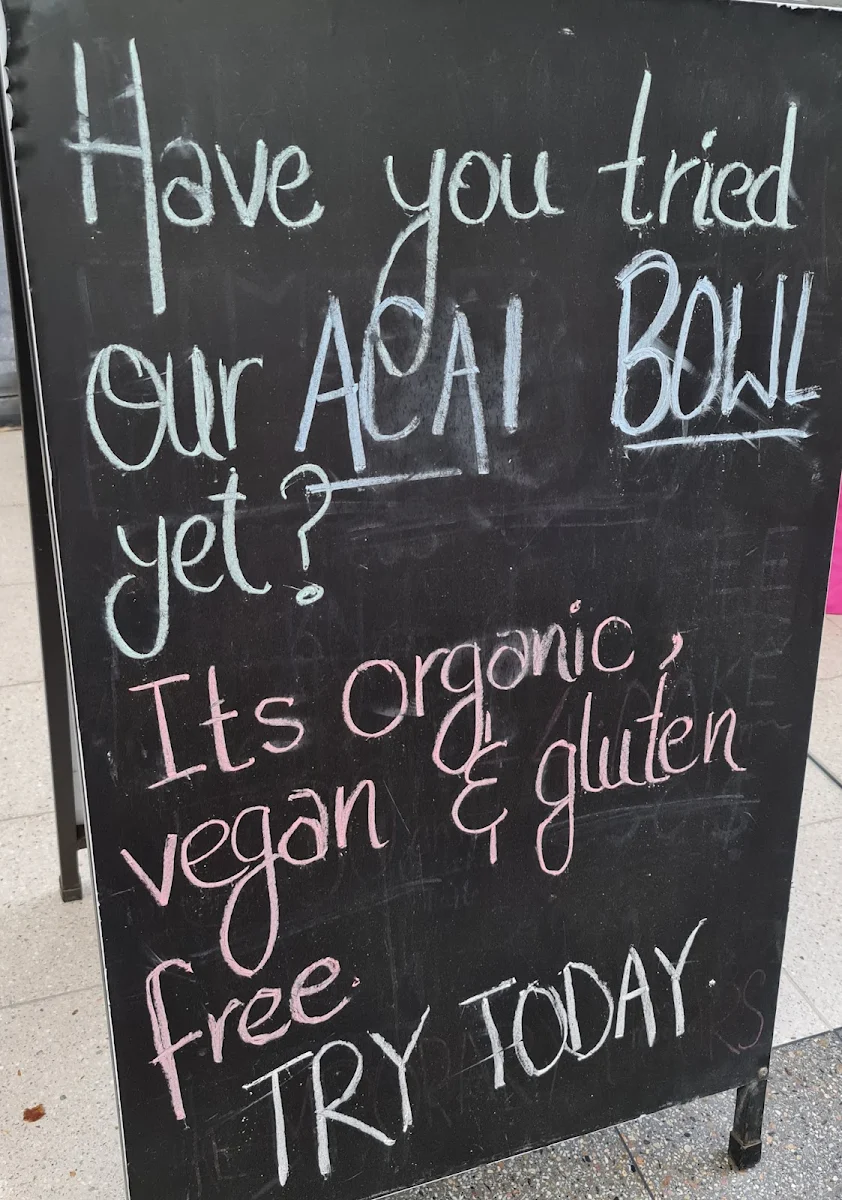 Have you tried
our ACAI BOWL
yet?
Its organic,
vegan & gluten
free.
TRY TODAY.